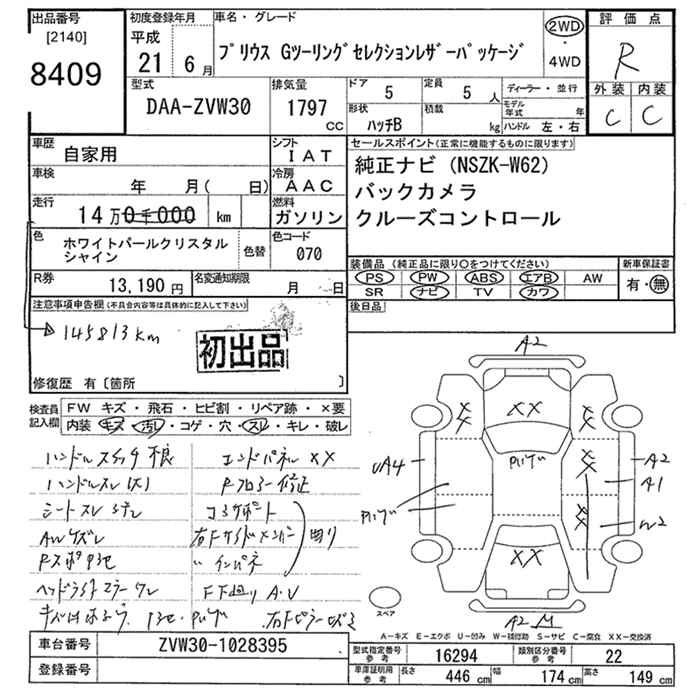 出品番号
[2140]
8409
初度登録年月
平成
21 6月
車名・グレード
プリウス GツーリングセレクションレザーパッケージE
2WD
・
4WD
評価点
R
外装 内装
C C
型式
DAA-ZVW30
排気量
1797
CC
ドア 5
定員 5 人
形状 ハッチB
積載 kg
ディーラー・並行
モデル年式 年
ハンドル 左・右
車歴 自家用
シフト IAT
車検 年 月( 日)
冷房 AAC
走行 14万0千000 km
燃料 ガソリン
色 ホワイトパールクリスタル
シャイン
色替
色コード 070
R券 13,190円
名変通知期限 月 日
セールスポイント(正常に機能するものに限ります)
純正ナビ(NSZK-W62)
バックカメラ
クルーズコントロール
装備品(純正品に限り○をつけてください)
PS PW ABS エアB AW
SR ナビ TV カワ
新車保証書
有・無
後日品
注意事項申告欄(不具合内容等は具体的に記入して下さい)
145813km
初出品
修復歴 有〔箇所 〕
検査員
記入欄
FW キズ・飛石・ヒビ割・リペア跡・×要
内装 キズ・汚レ・コゲ・穴・スレ・キレ・破レ
ハンドルスイッチ不良
ハンドルスレ(大)
シートスレ シワレ
AWキズレ
エンドパネルXX
Rフロアー修正
コアサポート
右Fサイドメンバー
〃 インパネ
曲り
F下廻り A・V
A2
XX
XX
UA4
Pハゲ
XX
A2
A1
Pハゲ
XX
W2
XX
スペア
A2 M
A－キズ E－エクボ U－凹み W－補修跡 S－サビ C－腐食 XX－交換済
車台番号 ZVW30-1028395
登録番号
型式指定番号
参考
16294
類別区分番号
参考
22
車庫証明用
参考
長さ 446 cm 幅 174 cm 高さ 149 cm